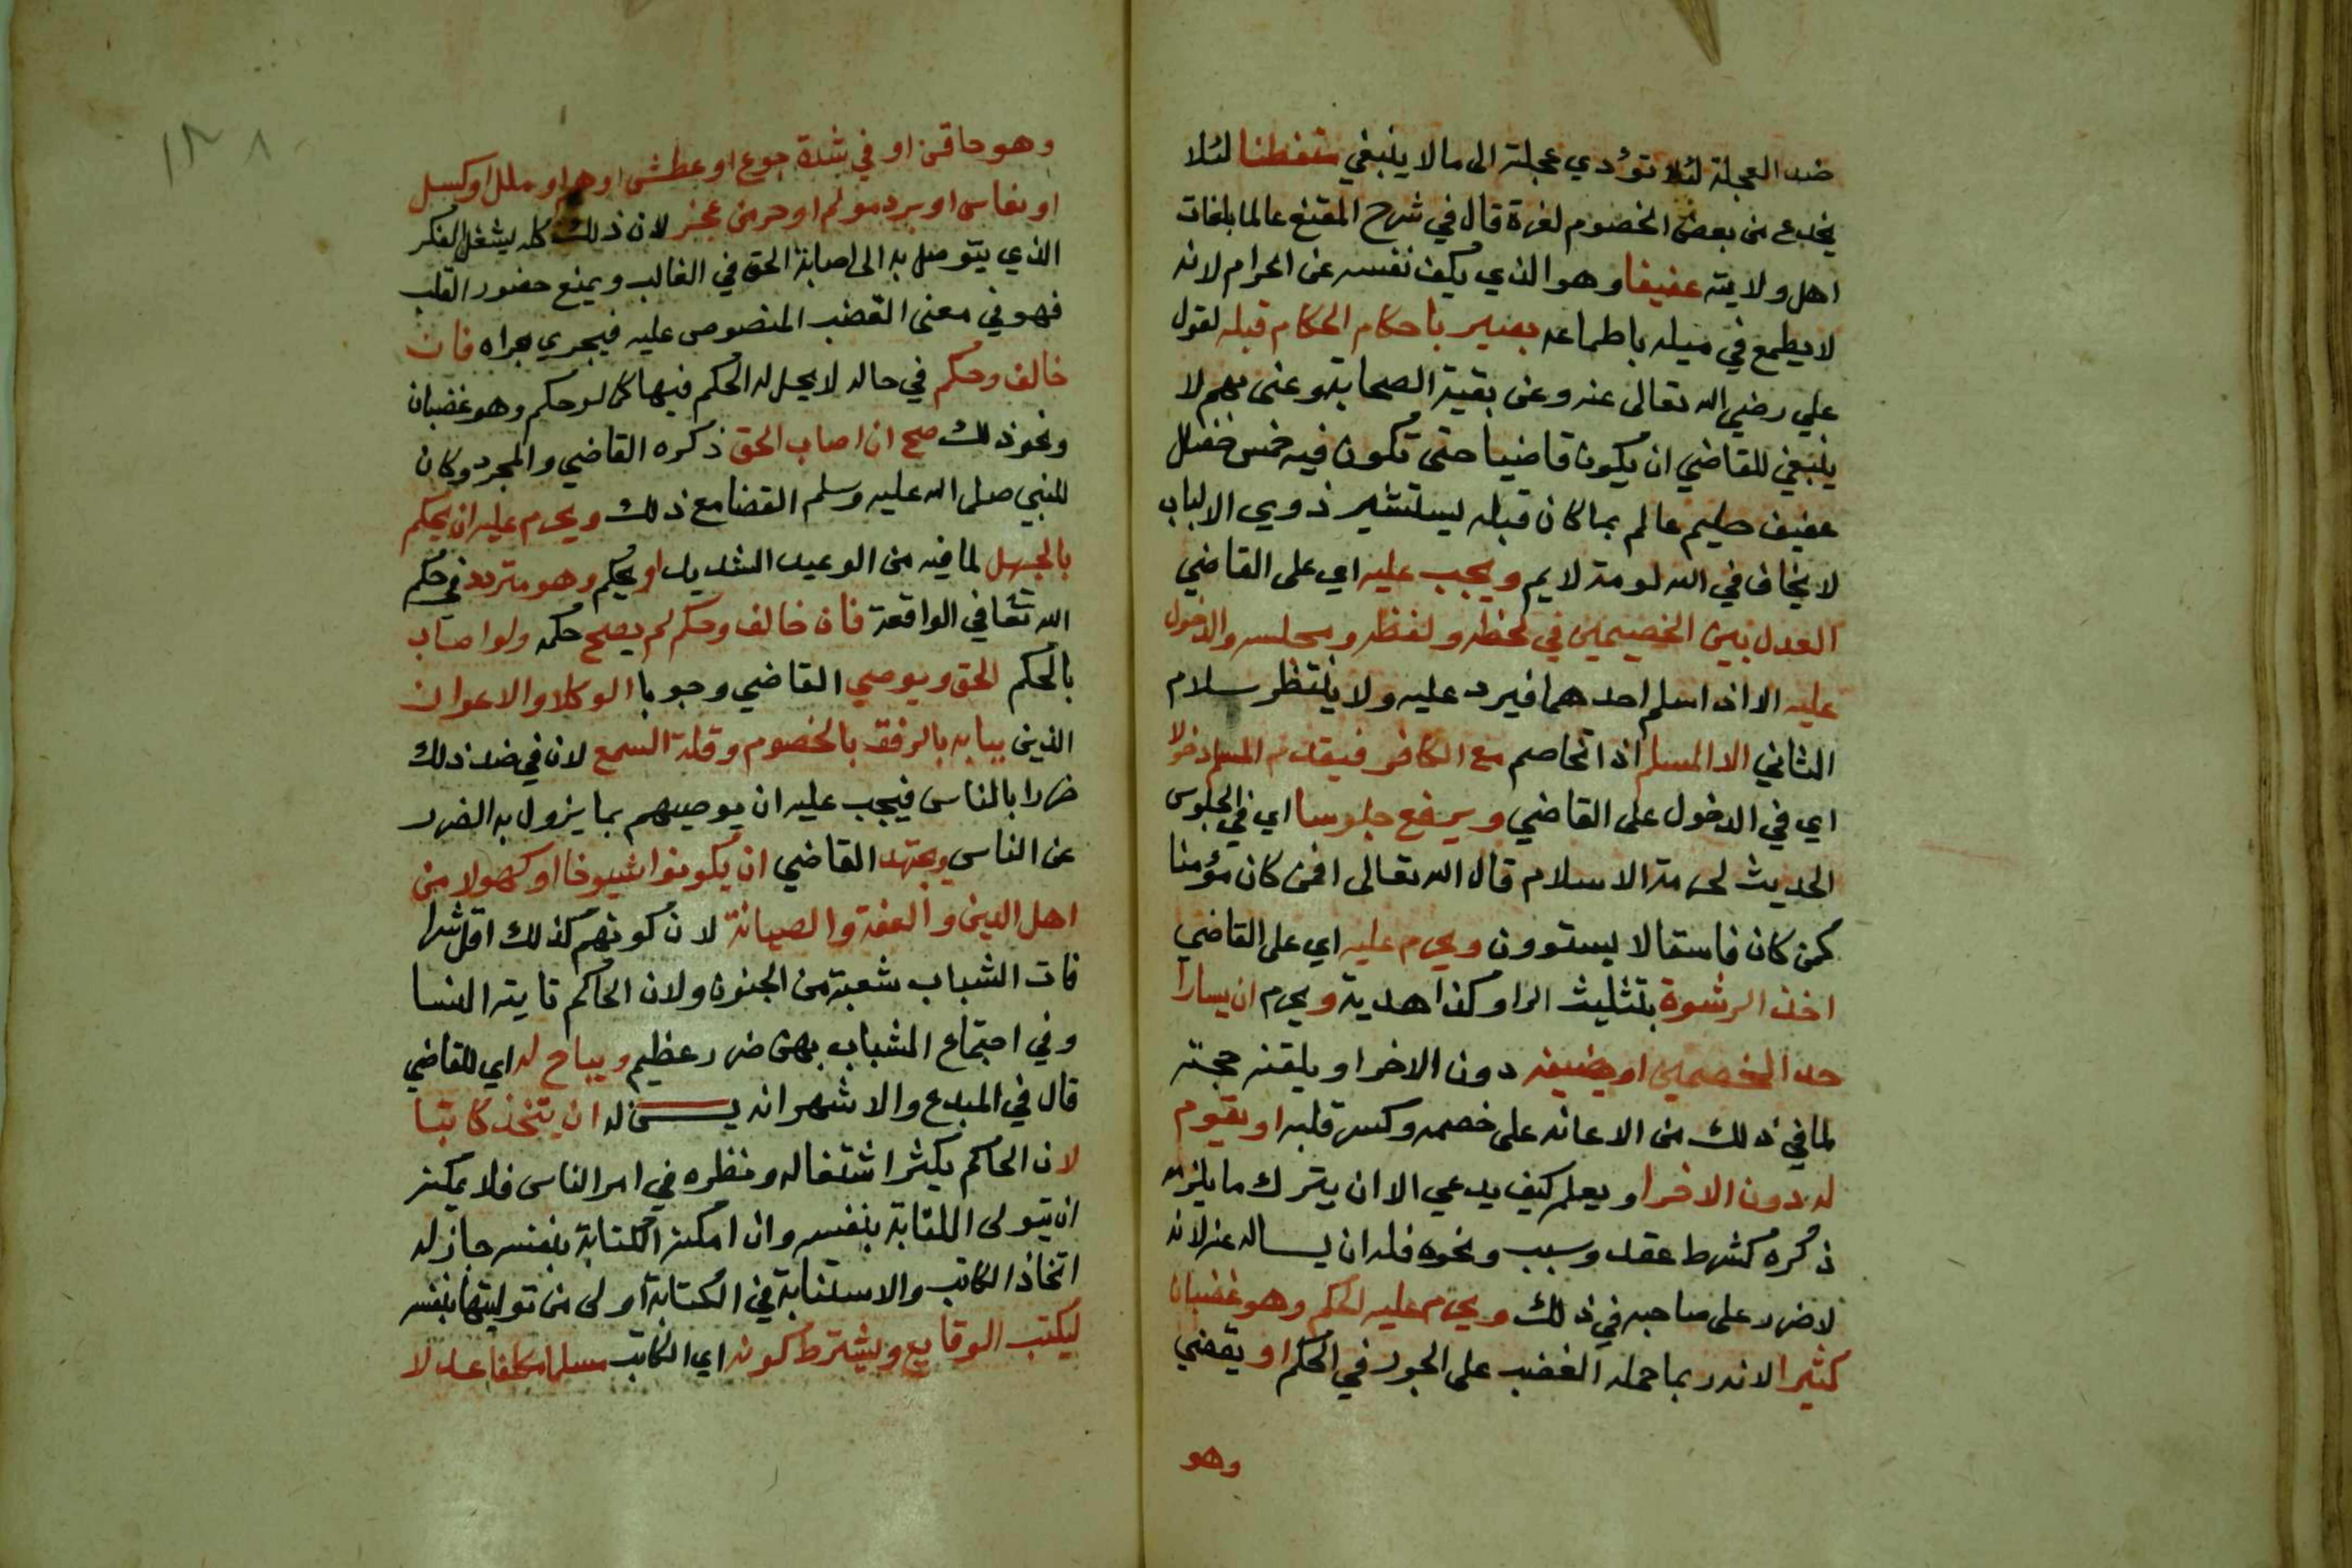 ضد العجلة لئلا تؤدي عجلته الى ما لا ينبغي متفطنا لئلا
يخدع من بعض الخصوم لغرة قال في شرح المقنع عالما بلغات
اهل ولايته عفيفا وهو الذي يكف نفسه عن الحرام لانه
لا يطمع في ميله باطماعه بصير باحكام الحكام قبله لقول
علي رضي الله تعالى عنه وعن بقية الصحابة وعنى بهم لا
ينبغي للقاضي ان يكون قاضيا حتى تكون فيه خمس خصال
عفيف حليم عالم بما كان قبله يستشير ذوي الالباب
لا يخاف في الله لومة لايم ويجب عليه اي على القاضي
العدل بين الخصمين في لحظه ولفظه ومجلسه والدخول
عليه الا اذا سلم احدهما فيرد عليه ولا ينتظر سلام
الثاني الا المسلم اذا تخاصم مع الكافر فيقدم المسلم دخولا
اي في الدخول على القاضي ويرفع جلوسا اي في الجلوس
الحديث لحرمة الاسلام قال الله تعالى افمن كان مؤمنا
كمن كان فاسقا لا يستوون ويحرم عليه اي على القاضي
اخذ الرشوة بتثليث الرا وكذا هدية ويحرم ان يسارا
حد الخصمين او يضيفه دون الاخر او يلقنه حجته
لما في ذلك من الاعانة على خصمه وكسر قلبه او يقوم
له دون الاخر او يعلم كيف يدعي الا ان يترك ما يلزمه
ذكره كشرط عقد وسبب ونحوه فله ان يساله عنه لانه
لا ضرر على صاحبه في ذلك ويحرم عليه الحكم وهو غضبان
كثيرا لانه ربما حمله الغضب على الجور في الحكم او يقضي
وهو
١٣٨
وهو حاقن او في شدة جوع او عطش او هم او ملل او كسل
او نعاس او برد مولم او حر مزعج لان ذلك كله يشغل الفكر
الذي يتوصل به الى اصابة الحق في الغالب ويمنع حضور القلب
فهو في معنى الغضب المنصوص عليه فيجري مجراه فان
خالف وحكم في حال لا يحل له الحكم فيها كما لو حكم وهو غضبان
ونحو ذلك صح ان اصاب الحق ذكره القاضي والمجرد وكان
للنبي صلى الله عليه وسلم القضا مع ذلك ويحرم عليه ان يحكم
بالجهل لما فيه من الوعيد الشديد او يحكم وهو متردد في حكم
الله تعا في الواقعة فان خالف وحكم لم يصح حكمه ولو اصاب
بالحكم الحق ويوصي القاضي وجوبا الوكلا والاعوان
الذين ببابه بالرفق بالخصوم وقلة السمع لان في ضد ذلك
ضررا بالناس فيجب عليه ان يوصيهم بما يزول به الضرر
عن الناس ويجتهد القاضي ان يكونوا شيوخا او كهولا من
اهل الدين والعفة والصيانة لان كونهم كذلك اقل شرا
فان الشباب شعبة من الجنون ولان الحاكم تايته النسا
وفي اجتماع الشباب بهن ضرر عظيم ويباح له اي للقاضي
قال في المبدع والاشهر انه يسن له ان يتخذ كاتبا
لان الحاكم يكثر اشتغاله ونظره في امر الناس فلا يمكنه
ان يتولى الكتابة بنفسه وان امكنه الكتابة بنفسه جاز له
اتخاذ الكاتب والاستنابة في الكتابة اولى من توليتها بنفسه
ليكتب الوقايع ويشترط كونه اي الكاتب مسلما مكلفا عدلا